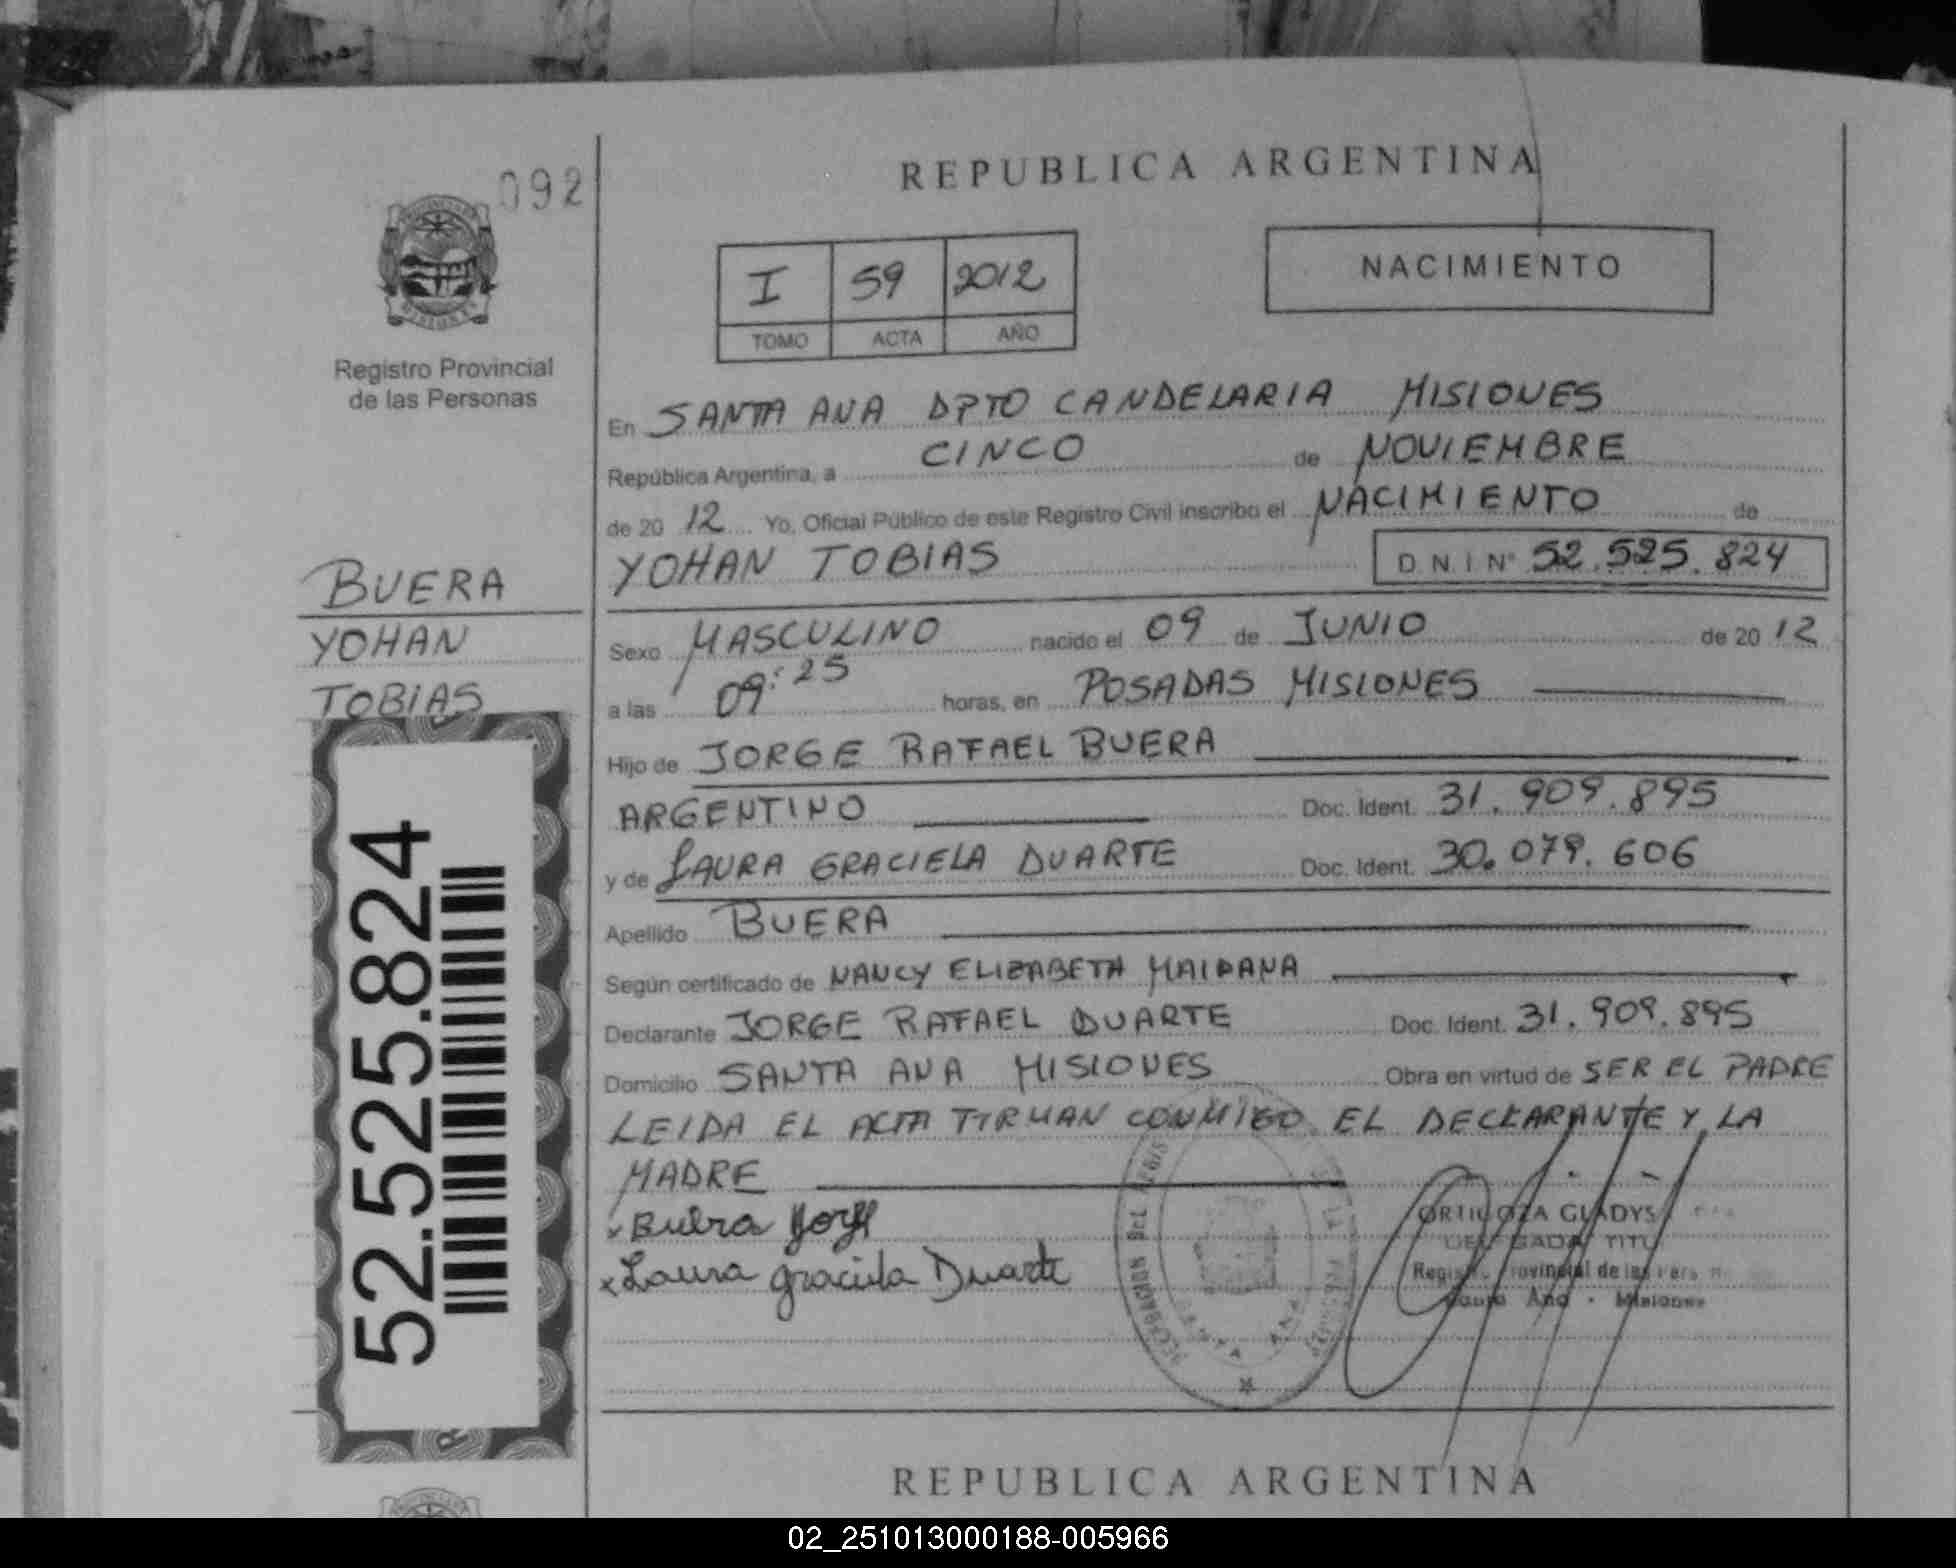 092
REPUBLICA ARGENTINA
I 59 2012
TOMO ACTA AÑO
NACIMIENTO
Registro Provincial
de las Personas
En SANTA ANA DPTO CANDELARIA MISIONES
República Argentina, a CINCO de NOVIEMBRE
de 20 12 Yo, Oficial Público de este Registro Civil inscribo el NACIMIENTO de
YOHAN TOBIAS D.N.I Nº 52.525.824
BUERA
YOHAN
TOBIAS
52.525.824
Sexo MASCULINO nacido el 09 de JUNIO de 20 12
a las 09:25 horas, en POSADAS MISIONES
Hijo de JORGE RAFAEL BUERA
ARGENTINO Doc. Ident. 31.909.895
y de LAURA GRACIELA DUARTE Doc. Ident. 30.079.606
Apellido BUERA
Según certificado de NANCY ELIZABETH MAIDANA
Declarante JORGE RAFAEL DUARTE Doc. Ident. 31.909.895
Domicilio SANTA ANA MISIONES Obra en virtud de SER EL PADRE
LEIDA EL ACTA FIRMAN CONMIGO EL DECLARANTE Y LA
MADRE
x Buera Jorge
x Laura Graciela Duarte
ORTIGOZA GLADYS
DELEGADA TITU
Registro Provincial de las Pers
Santa Ana - Misiones
SANTA ANA
REPUBLICA ARGENTINA
02_251013000188-005966